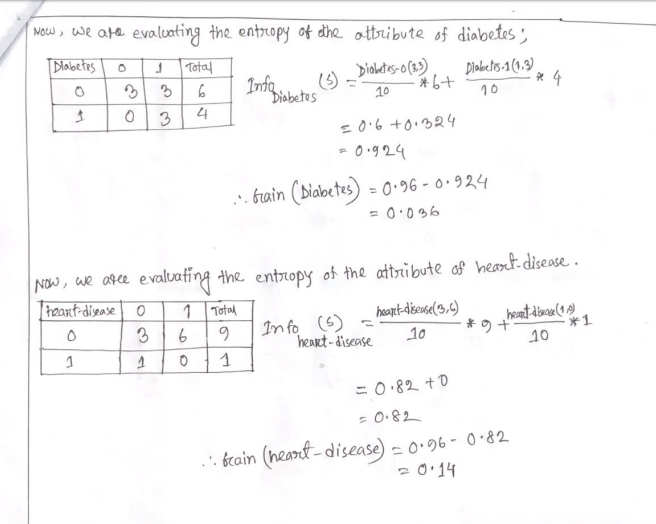 Now, we are evaluating the entropy of the attribute of diabetes;
Diabetes 0 1 Total
0 3 3 6
1 0 3 4
Info Diabetes (S) = Diabetes-0(3,3)/10 *6+ Diabetes-1(1,3)/10 * 4
= 0.6 + 0.324
= 0.924
∴ Gain (Diabetes) = 0.96 - 0.924
= 0.036
Now, we are evaluating the entropy of the attribute of heart-disease.
heart-disease 0 1 Total
0 3 6 9
1 1 0 1
Info heart-disease (S) = heart-disease(3,6)/10 * 9 + heart-disease(1,0)/10 *1
= 0.82 + 0
= 0.82
∴ Gain (heart-disease) = 0.96 - 0.82
= 0.14